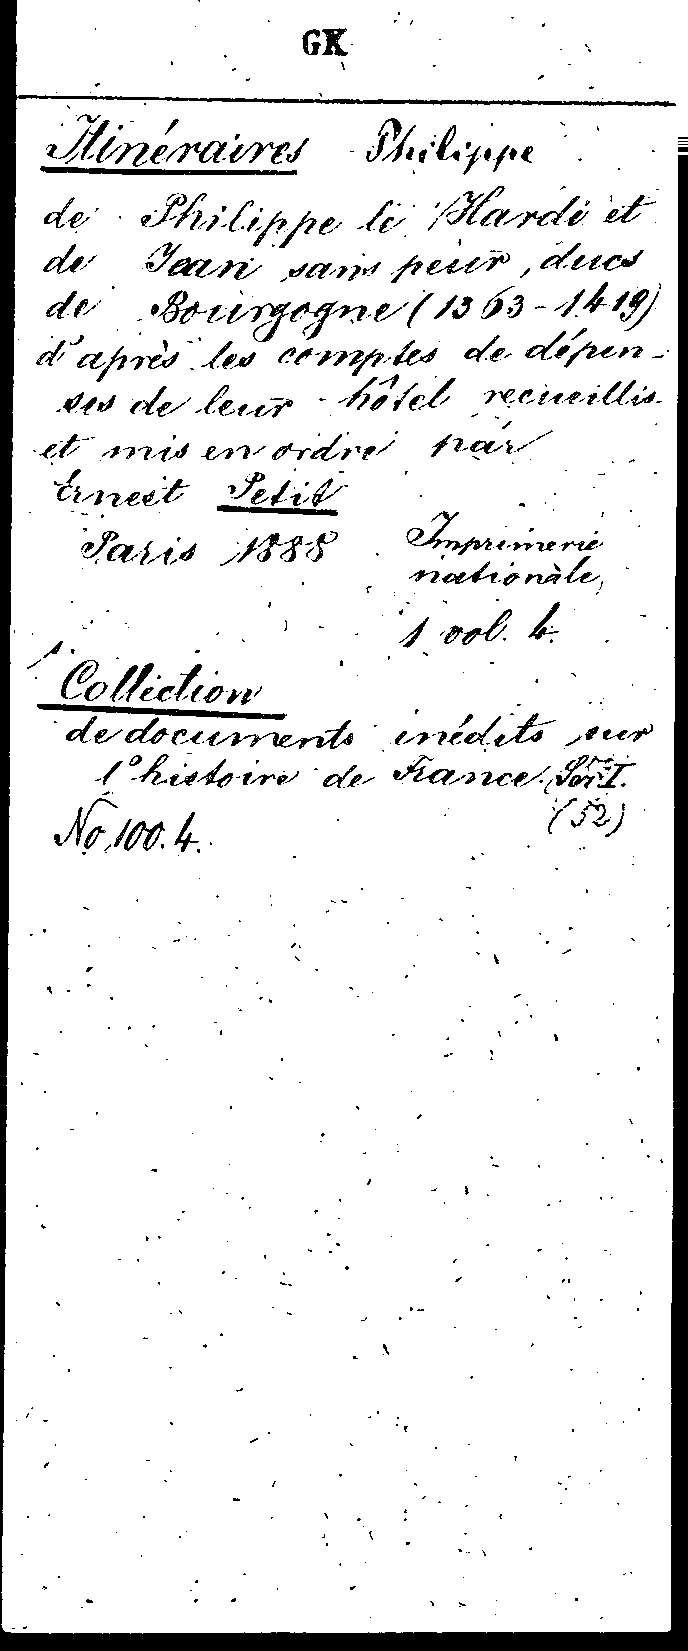 GK
Itinéraires Philippe
de Philippe le Hardi et
de Jean sans peur, ducs
de Bourgogne (1363-1419)
d'après les comptes de dépen-
ses de leur hôtel recueillis
et mis en ordre par
Ernest Petit
Paris 1888 Imprimerie
nationale,
1 vol. 4.
1. Collection
de documents inédits sur
l'histoire de France. Sér. I.
(52)
No 100.4.